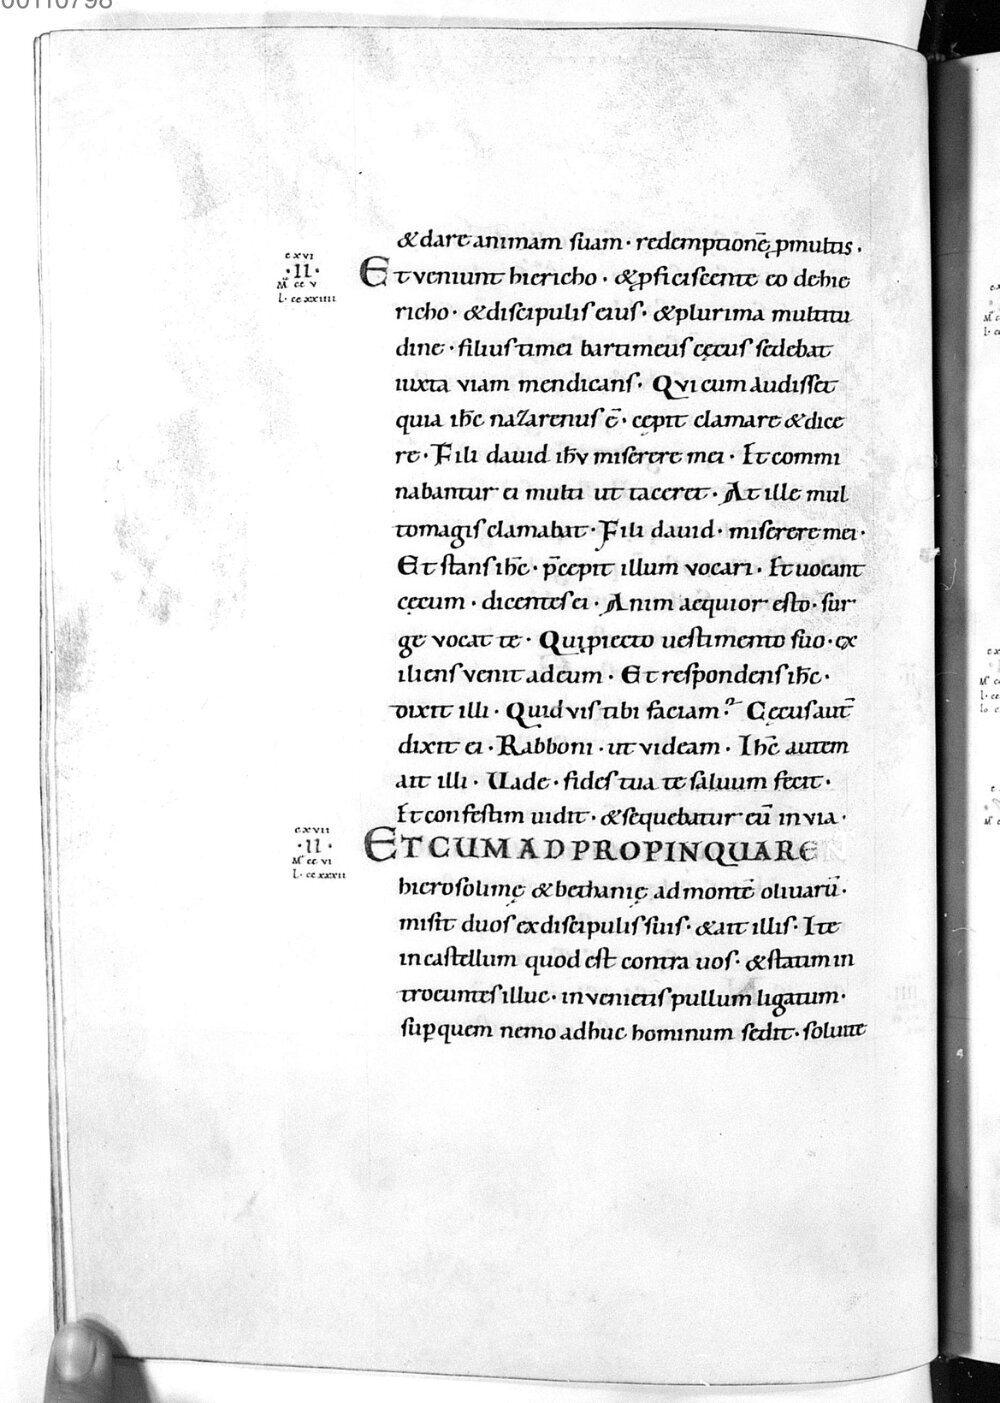 00110798
&dare animam suam· redemptionē ꝓmultis.
cxvi
·II·
Mᵗ ccv
L· ccxxiiii
Et veniunt hiericho· &ꝓficiscente eo dehie
richo· &discipulis eius· &plurima multitu
dine· filius timei bartimeus cęcus sedebat
iuxta viam mendicans. Qvi cum audisset
quia ihc̄ nazarenus ē· cępit clamare &dice
re· Fili dauid ihv miserere mei· Et commi
nabantur ei multi ut taceret· At ille mul
tomagis clamabat· Fili dauid· miserere mei·
Et stans ihc̄· p̄cepit illum vocari. Et uocant
cęcum· dicentes ei· Anim aequior esto· sur
ge vocat te· Qui ꝓiecto uestimento suo· ex
iliens venit ad eum· Et respondens ihc̄·
dixit illi· Quid vis tibi faciam? Cęcus aut̄
dixit ei· Rabboni· ut videam· Ihc̄ autem
ait illi· Uade· fides tua te saluum fecit·
Et confestim uidit· &sequebatur eū in via·
cxvii
·II·
Mᵗ ccvi
L· ccxxxii
ET CUM ADPROPINQUARE
hierosolimę &bethanię ad montē oliuarū·
misit duos ex discipulis suis· &ait illis· Ite
in castellum quod est contra uos· &statim in
troeuntes illuc· invenietis pullum ligatum·
suꝑ quem nemo adhuc hominum sedit· soluite